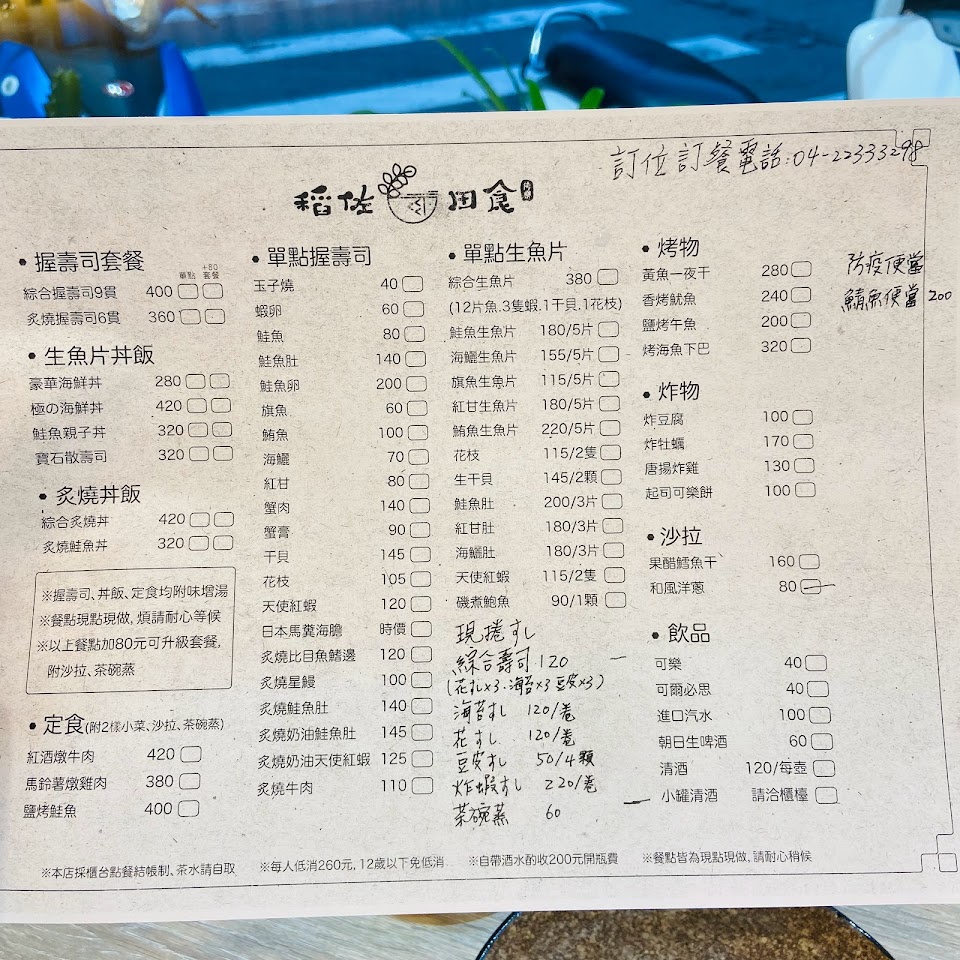 訂位訂餐電話:04-22333298
稻佐田食
•握壽司套餐
單點 +80套餐
綜合握壽司9貫 400
炙燒握壽司6貫 360
•生魚片丼飯
豪華海鮮丼 280
極の海鮮丼 420
鮭魚親子丼 320
寶石散壽司 320
•炙燒丼飯
綜合炙燒丼 420
炙燒鮭魚丼 320
※握壽司、丼飯、定食均附味增湯
※餐點現點現做, 煩請耐心等候
※以上餐點加80元可升級套餐,
附沙拉、茶碗蒸
•定食(附2樣小菜、沙拉、茶碗蒸)
紅酒燉牛肉 420
馬鈴薯燉雞肉 380
鹽烤鮭魚 400
•單點握壽司
玉子燒 40
蝦卵 60
鮭魚 80
鮭魚肚 140
鮭魚卵 200
旗魚 60
鮪魚 100
海鱺 70
紅甘 80
蟹肉 140
蟹膏 90
干貝 145
花枝 105
天使紅蝦 120
日本馬糞海膽 時價
炙燒比目魚鰭邊 120
炙燒星鰻 100
炙燒鮭魚肚 140
炙燒奶油鮭魚肚 145
炙燒奶油天使紅蝦 125
炙燒牛肉 110
•單點生魚片
綜合生魚片 380
(12片魚.3隻蝦.1干貝.1花枝)
鮭魚生魚片 180/5片
海鱺生魚片 155/5片
旗魚生魚片 115/5片
紅甘生魚片 180/5片
鮪魚生魚片 220/5片
花枝 115/2隻
生干貝 145/2顆
鮭魚肚 200/3片
紅甘肚 180/3片
海鱺肚 180/3片
天使紅蝦 115/2隻
磯煮鮑魚 90/1顆
現捲すし
綜合壽司 120
(花すし×3.海苔×3 豆皮×3)
海苔すし 120/卷
花すし 120/卷
豆皮すし 50/4顆
炸蝦すし 220/卷
茶碗蒸 60
•烤物
黃魚一夜干 280
香烤魷魚 240
鹽烤午魚 200
烤海魚下巴 320
•炸物
炸豆腐 100
炸牡蠣 170
唐揚炸雞 130
起司可樂餅 100
•沙拉
果醋鱈魚干 160
和風洋蔥 80
•飲品
可樂 40
可爾必思 40
進口汽水 100
朝日生啤酒 60
清酒 120/每壺
小罐清酒 請洽櫃檯
防疫便當
鯖魚便當 200
※本店採櫃台點餐結帳制、茶水請自取 ※每人低消260元, 12歲以下免低消 ※自帶酒水酌收200元開瓶費 ※餐點皆為現點現做, 請耐心稍候